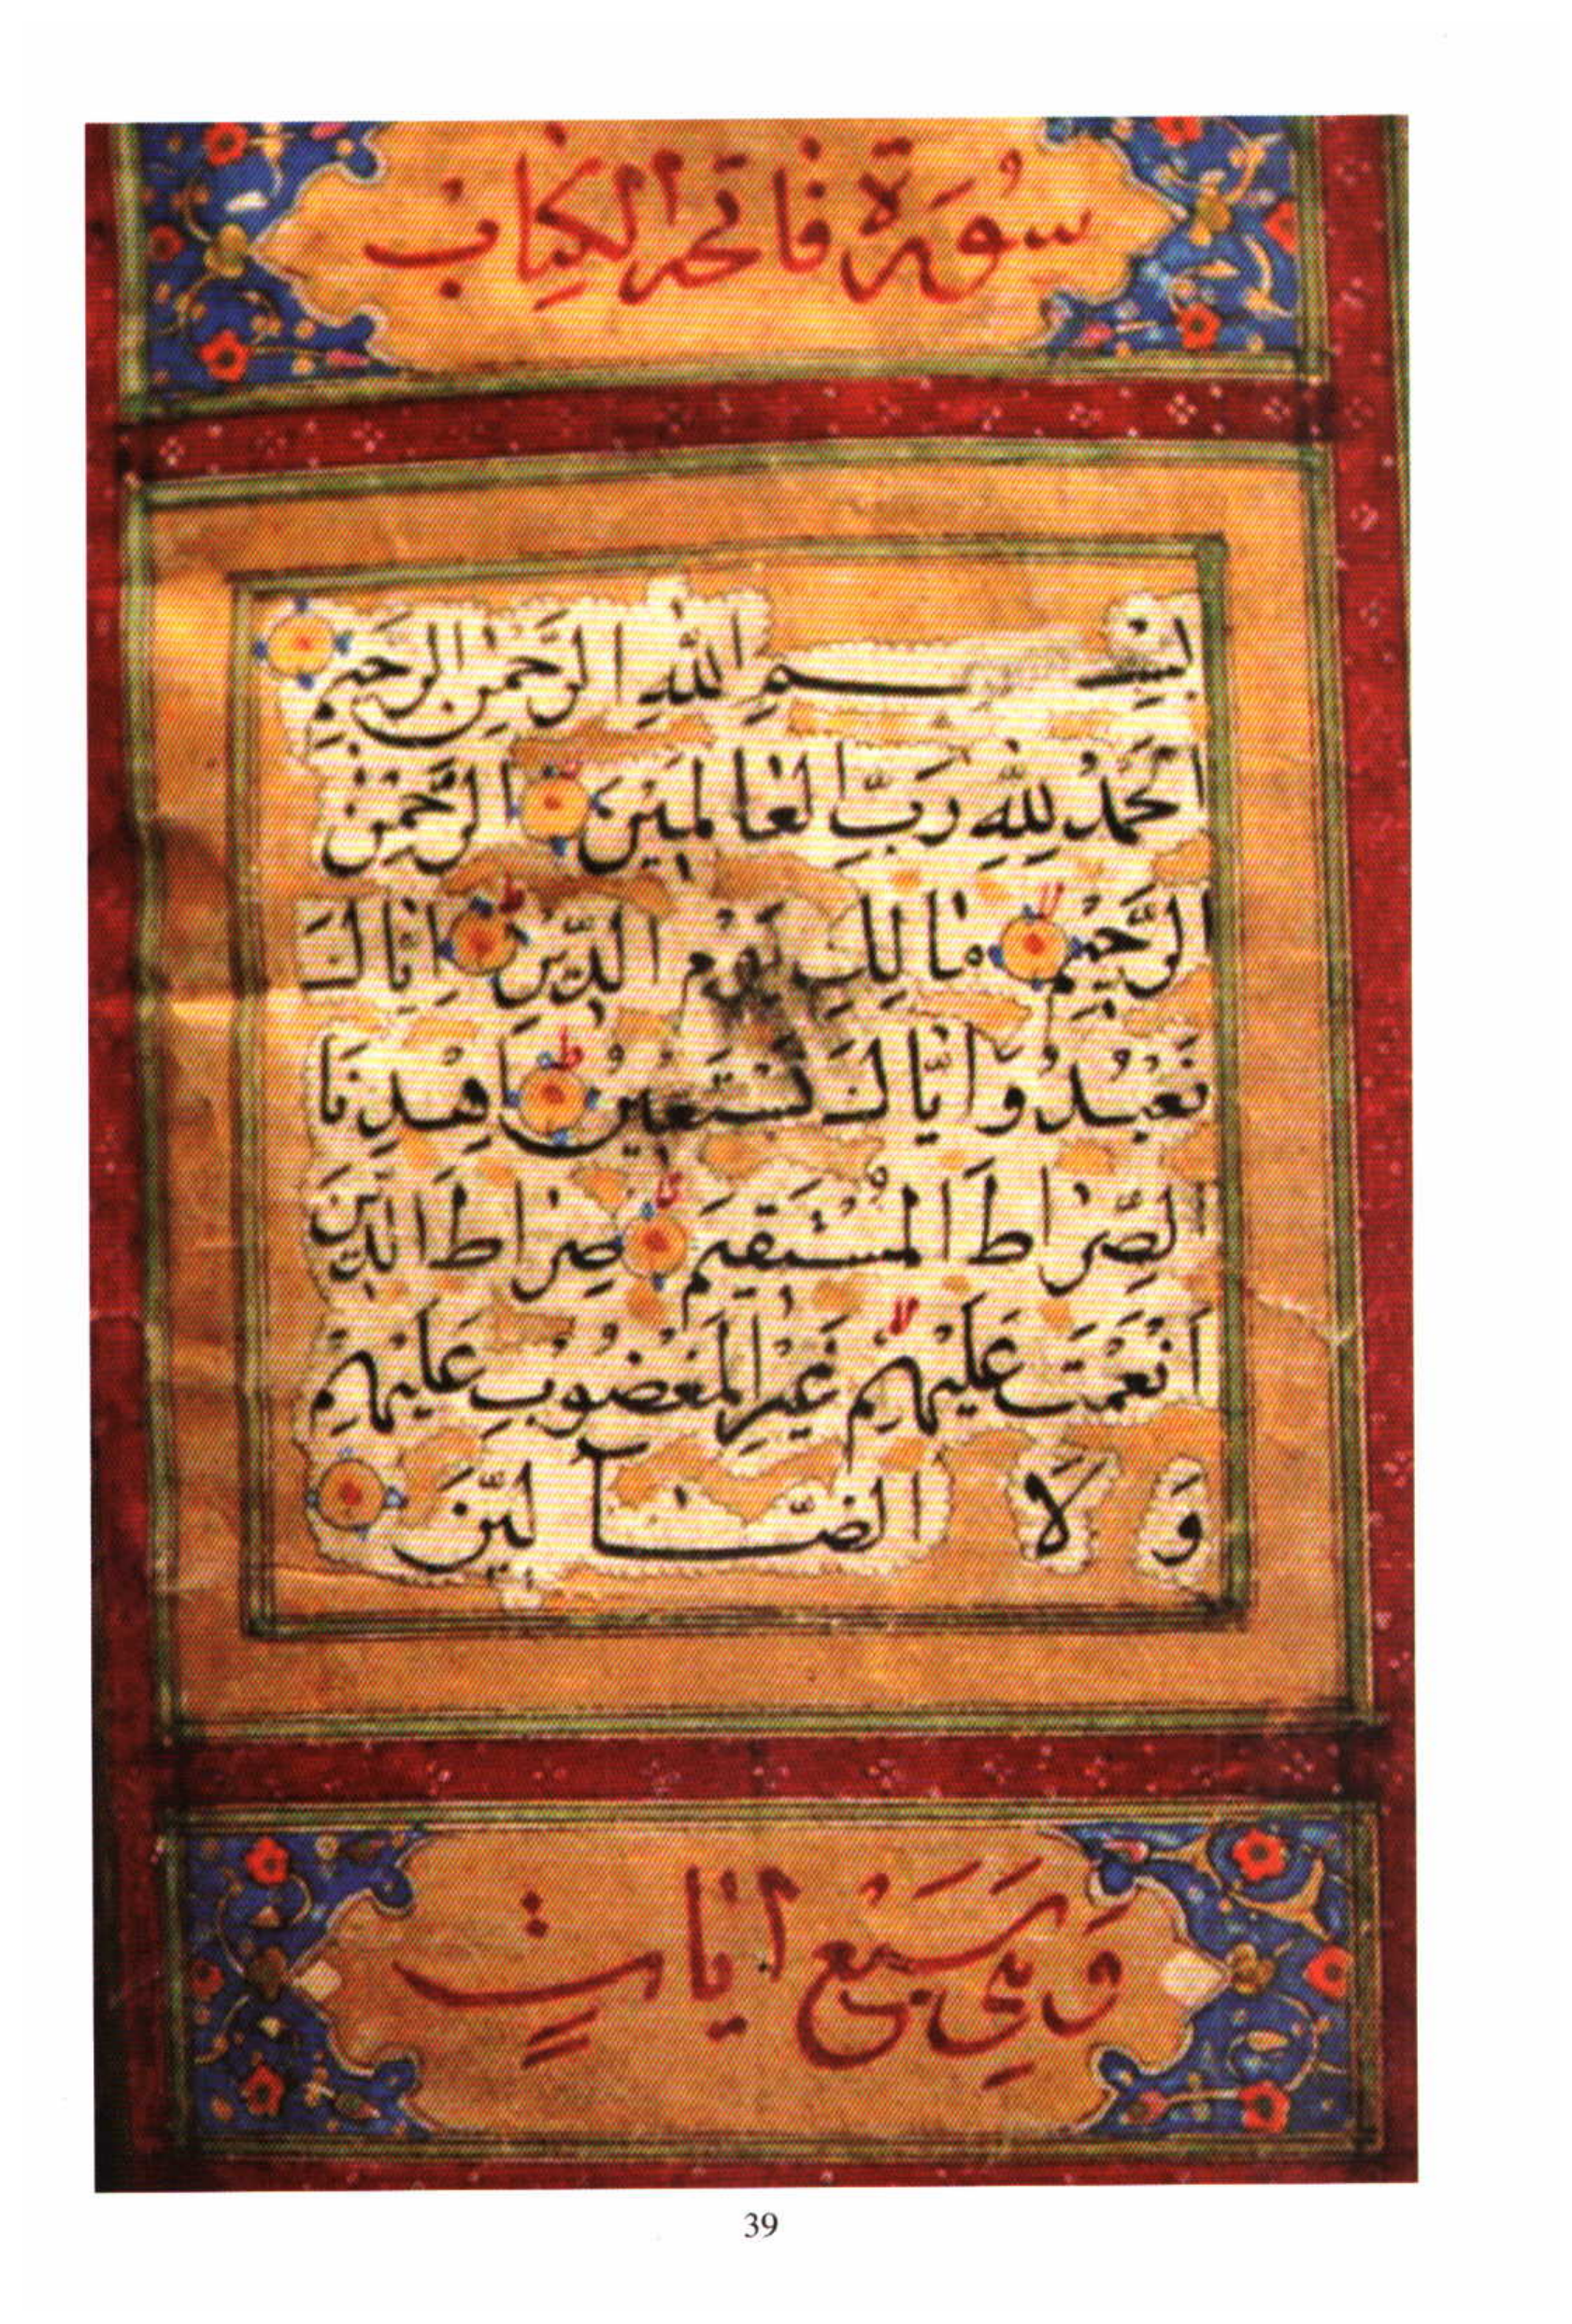 سُورَة فَاتِحَة الْكِتَاب
بِسْمِ اللَّهِ الرَّحْمٰنِ الرَّحِيمِ
اَلْحَمْدُ لِلّٰهِ رَبِّ الْعَالَمِيْنَ الرَّحْمٰنِ
الرَّحِيْمِ مَالِكِ يَوْمِ الدِّيْنِ اِيَّاكَ
نَعْبُدُ وَاِيَّاكَ نَسْتَعِيْنُ اِهْدِنَا
الصِّرَاطَ الْمُسْتَقِيْمَ صِرَاطَ الَّذِيْنَ
اَنْعَمْتَ عَلَيْهِمْ غَيْرِ الْمَغْضُوْبِ عَلَيْهِمْ
وَ لَا الضَّآلِّيْنَ
وَهِيَ سَبْعُ اٰيَاتٍ
39